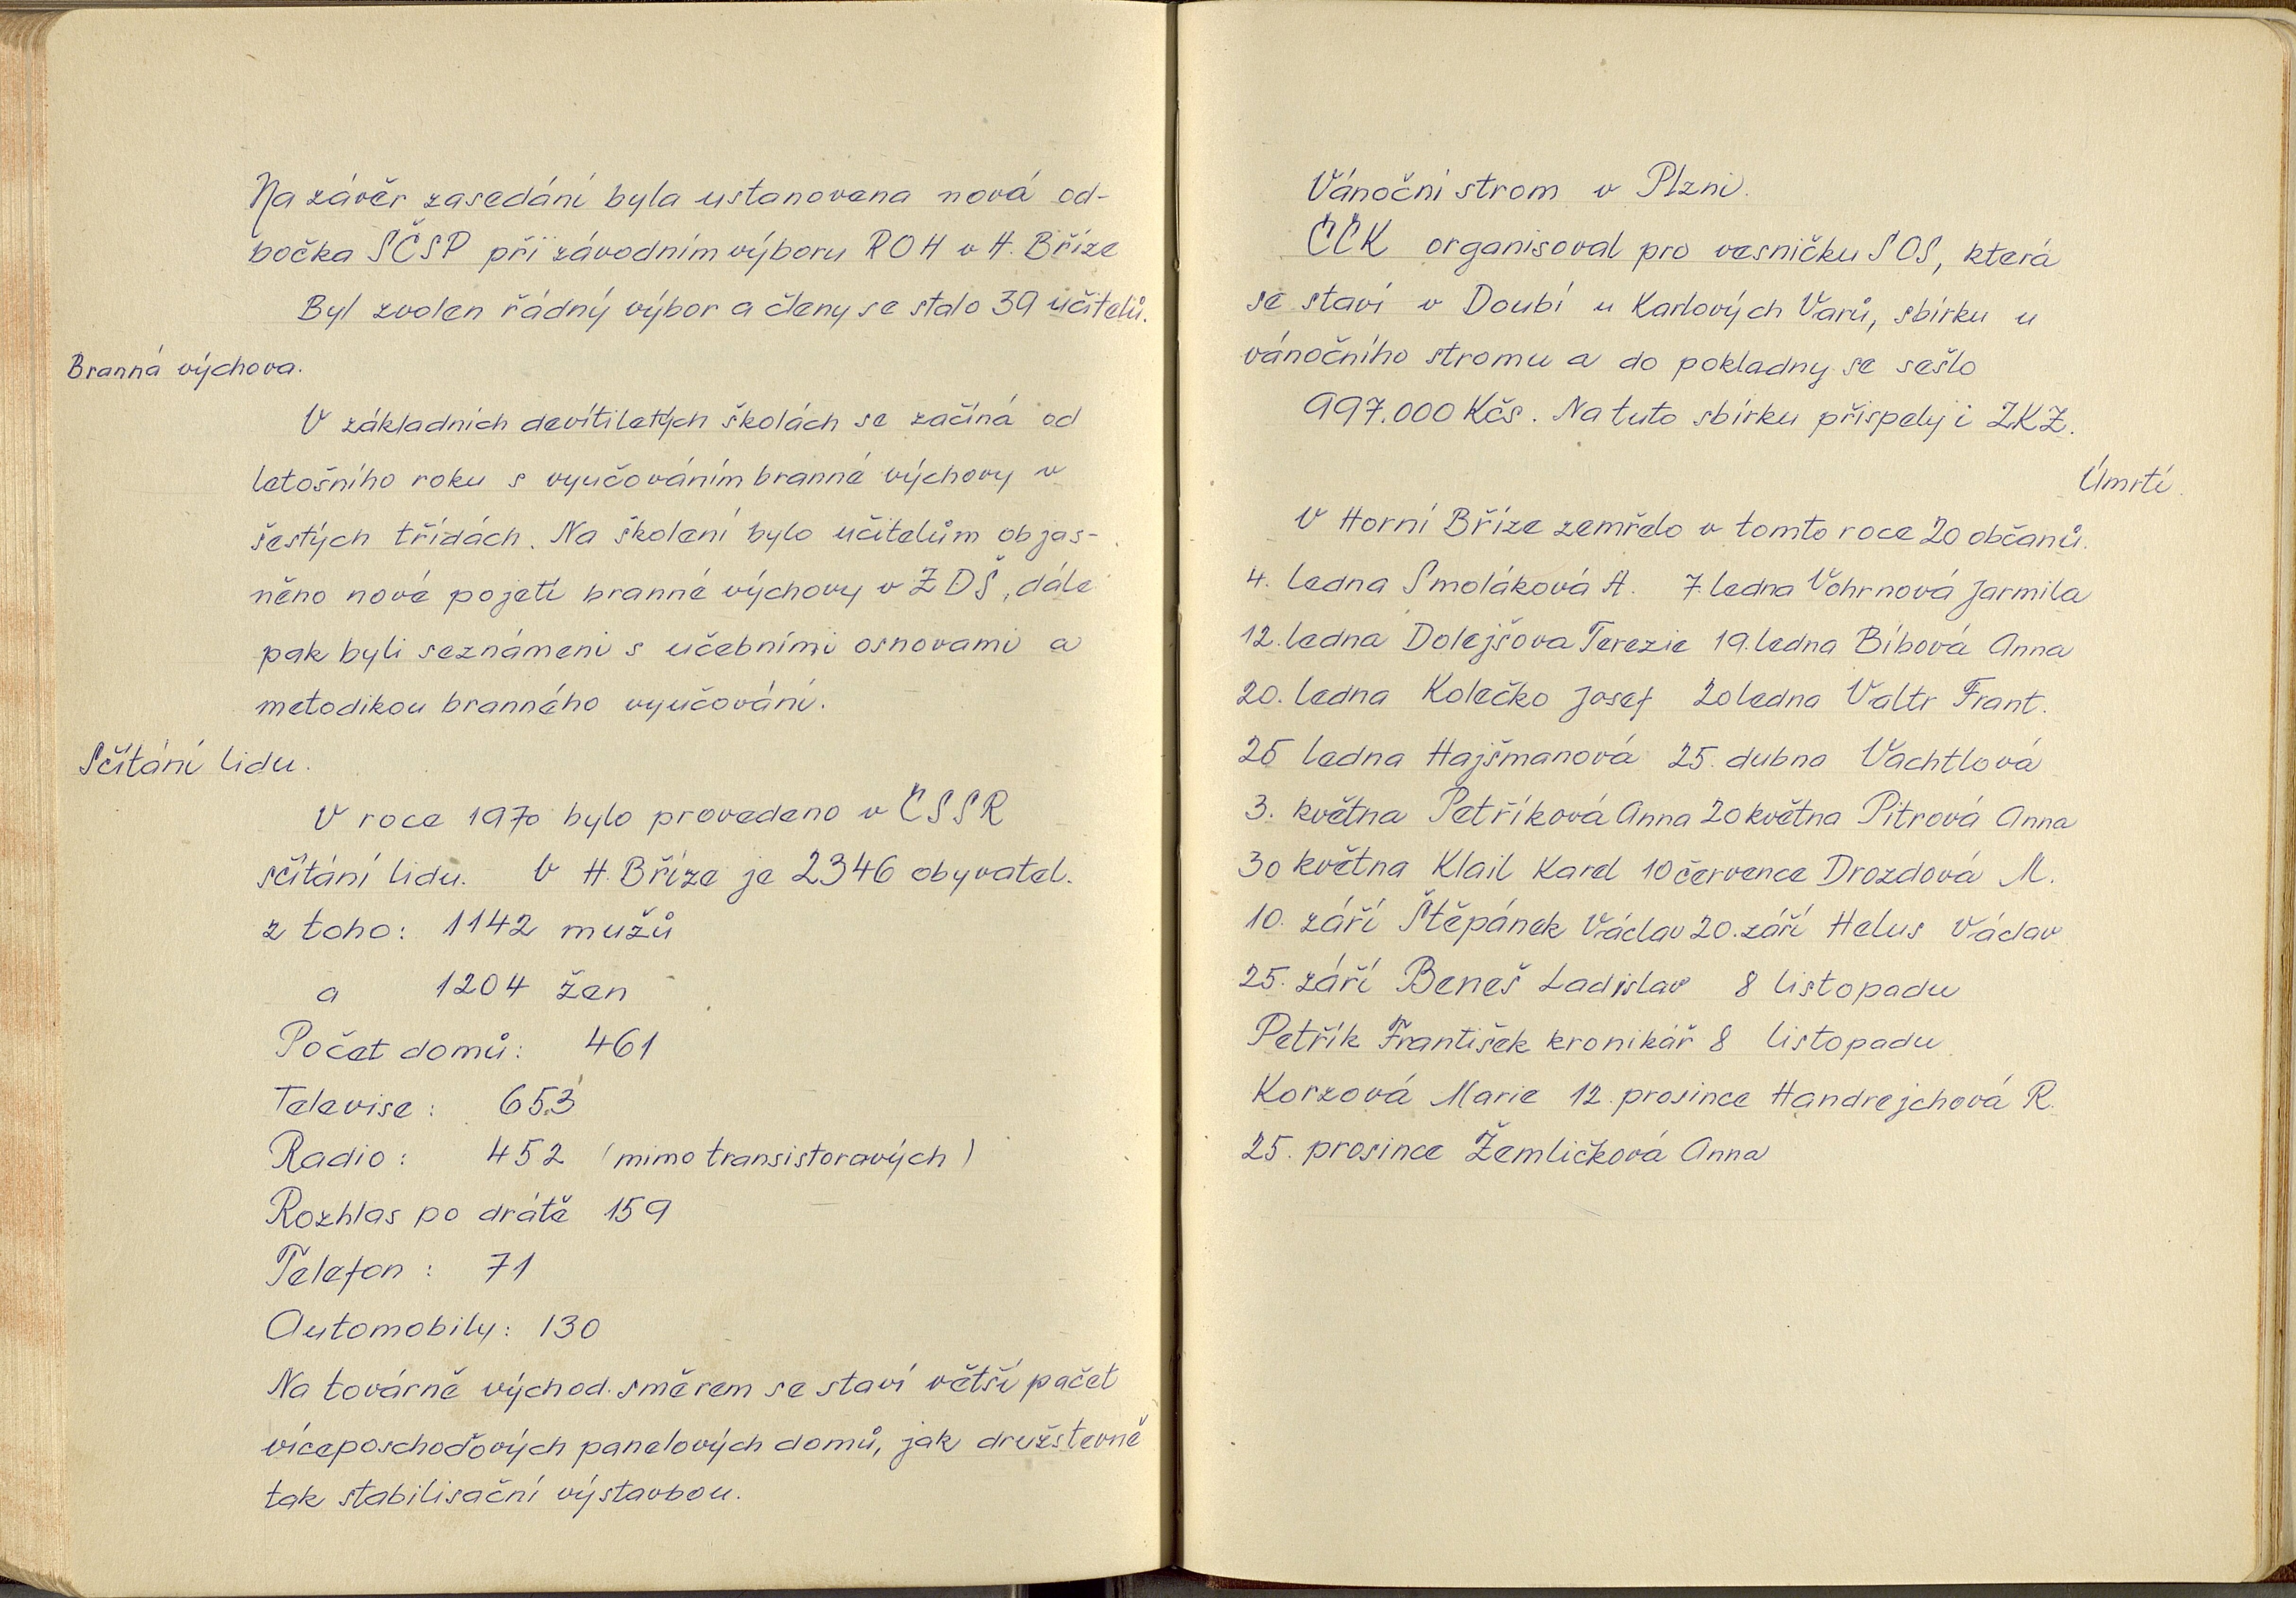 Na závěr zasedání byla ustanovena nová od-
bočka SČSP při závodním výboru ROH v H. Bříze
Byl zvolen řádný výbor a členy se stalo 39 učitelů.
Branná výchova.
V základních devítiletých školách se začíná od
letošního roku s vyučováním branné výchovy v
šestých třídách. Na školení bylo učitelům objas-
něno nové pojetí branné výchovy v ZDŠ, dále
pak byli seznámeni s učebními osnovami a
metodikou branného vyučování.
Sčítání lidu.
V roce 1970 bylo provedeno v ČSSR
sčítání lidu. V H. Bříze je 2346 obyvatel.
z toho: 1142 mužů
a 1204 žen
Počet domů: 461
Televise: 653
Radio: 452 (mimo transistorových)
Rozhlas po drátě 159
Telefon: 71
Automobily: 130
Na továrně východ. směrem se staví větší počet
víceposchoďových panelových domů, jak družstevně
tak stabilisační výstavbou.
Vánoční strom v Plzni.
ČČK organisoval pro vesničku SOS, která
se staví v Doubí u Karlových Varů, sbírku u
vánočního stromu a do pokladny se sešlo
997.000 Kčs. Na tuto sbírku přispěly i ZKZ.
Úmrtí.
V Horní Bříze zemřelo v tomto roce 20 občanů.
4. ledna Smoláková A. 7. ledna Vohrnová Jarmila
12. ledna Dolejšova Terezie 19. ledna Bíbová Anna
20. ledna Kolečko Josef 20 ledna Valtr Frant.
25 ledna Hajšmanová 25. dubna Vachtlová
3. května Petříková Anna 20 května Pitrová Anna
30 května Klail Karel 10 července Drozdová M.
10. září Štěpánek Václav 20. září Helus Václav
25. září Beneš Ladislav 8 listopadu
Petřík František kronikář 8 listopadu
Korzová Marie 12. prosince Handrejchová R.
25. prosince Žemličková Anna